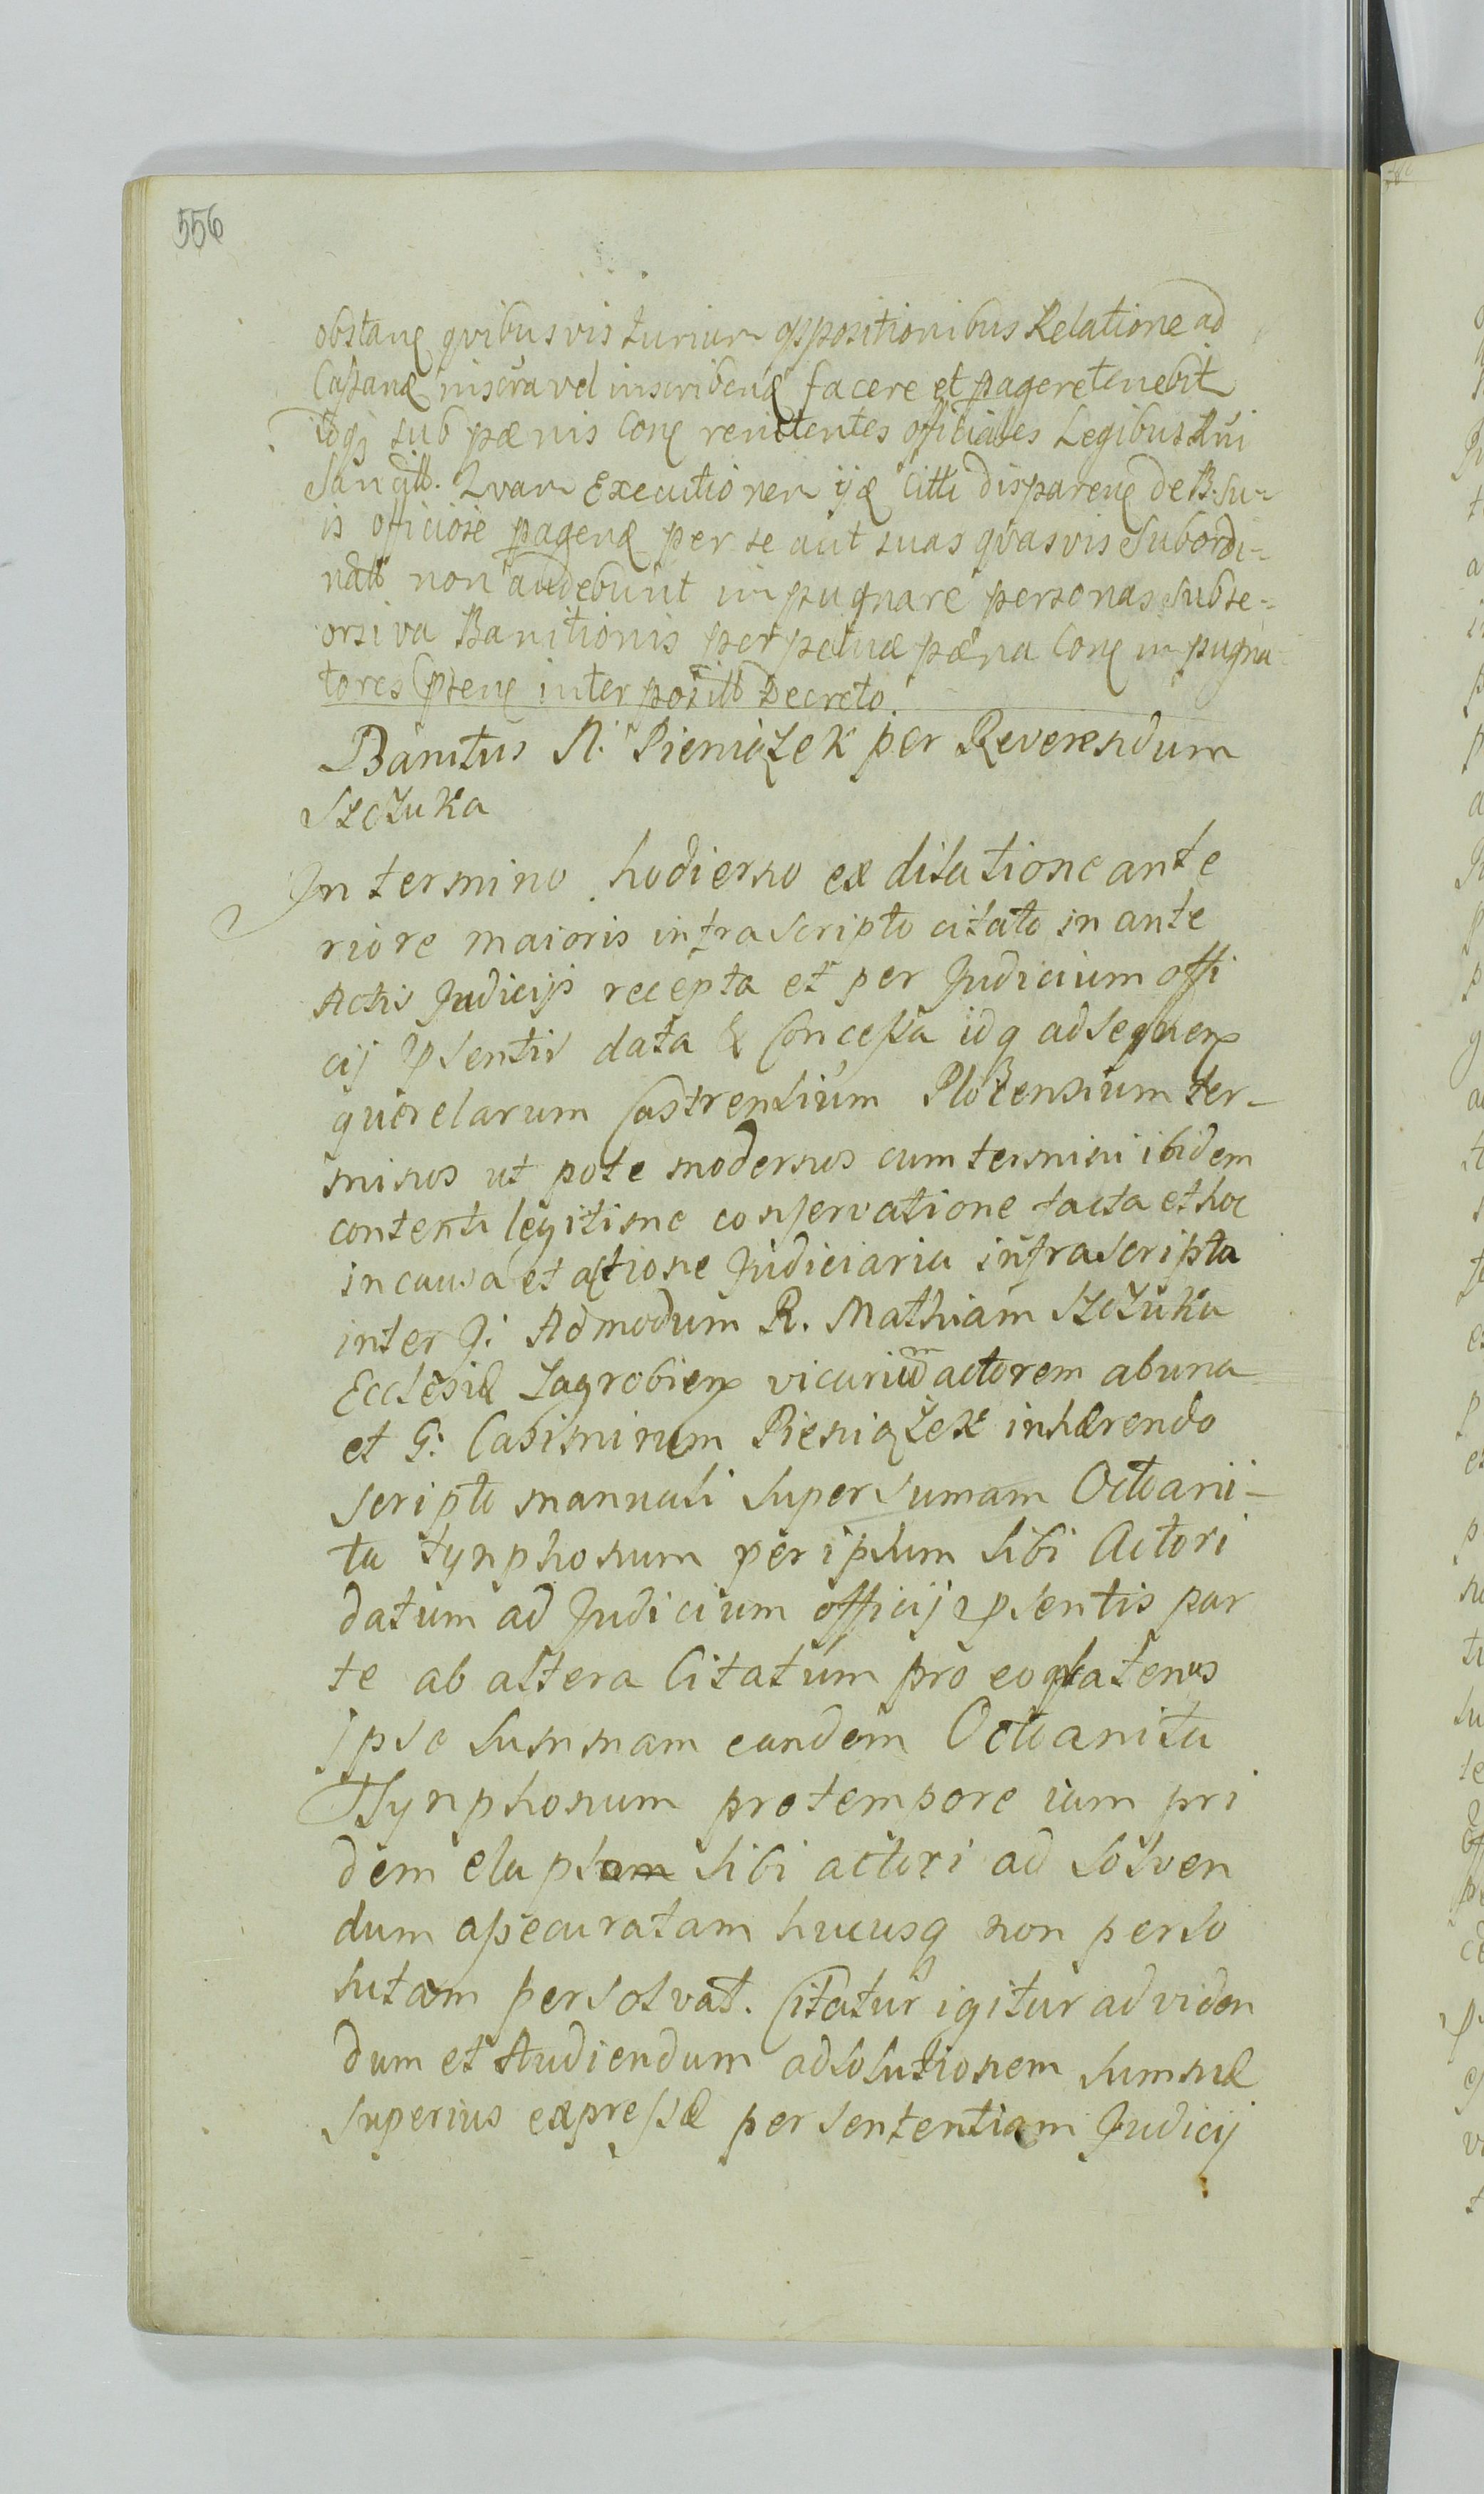 556
obstanȩ qvibusvis Iurium oppositionibus Relatione ad
Castranȩ inscra vel inscribenȩ facere et pagere tenebit
idq; sub pænis Conȩ renitentes officiales Legibus Rni
Sancitt. Qvam Executionem ijȩ Citti disparenȩ de B. su-
is officiose pagenȩ per se aut suas qvasvis Subordi-
natt non audebunt impugnare personas sub se-
orsiva Banitionis perpetuæ pæna Conȩ impugna-
tores pstenȩ interpositt Decreto.
Banitus N. Pieniązek per Reverendum
Szczuka
In termino hodierno ex dilatione ante
riore maioris infrascripto citato in ante
Actis Judicijs recepta et per Judicium offi
cij psentis data & Concessa idq adsequenȩ
querelarum Castrensium Plocensium ter-
minus ut pote modernus cum termini ibidem
contenti legitime conservatione facta et hoc
in causa et actione Judiciaria infrascripta
inter J: Admodum R. Mathiam Szczuka
Ecclesiæ Zagrobienȩ vicarium actorem ab una
et G: Casimirum Pieniązek inhærendo
scripto mannuali super sumam Octoani-
ta tynphonum per ipsum sibi Actori
datum ad Judicium officij psentis par
te ab altera Citatum pro eo quatenus
Ipse summam eandem Octoanita
Tynphonum pro tempore iam pri
dem elapsam sibi actori ad solven
dum assecuratam hucusq non perso
lutam persolvat. Citatur igitur ad viden
dum et Audiendum adsolutionem summæ
superius expressæ per sententiam Judicij